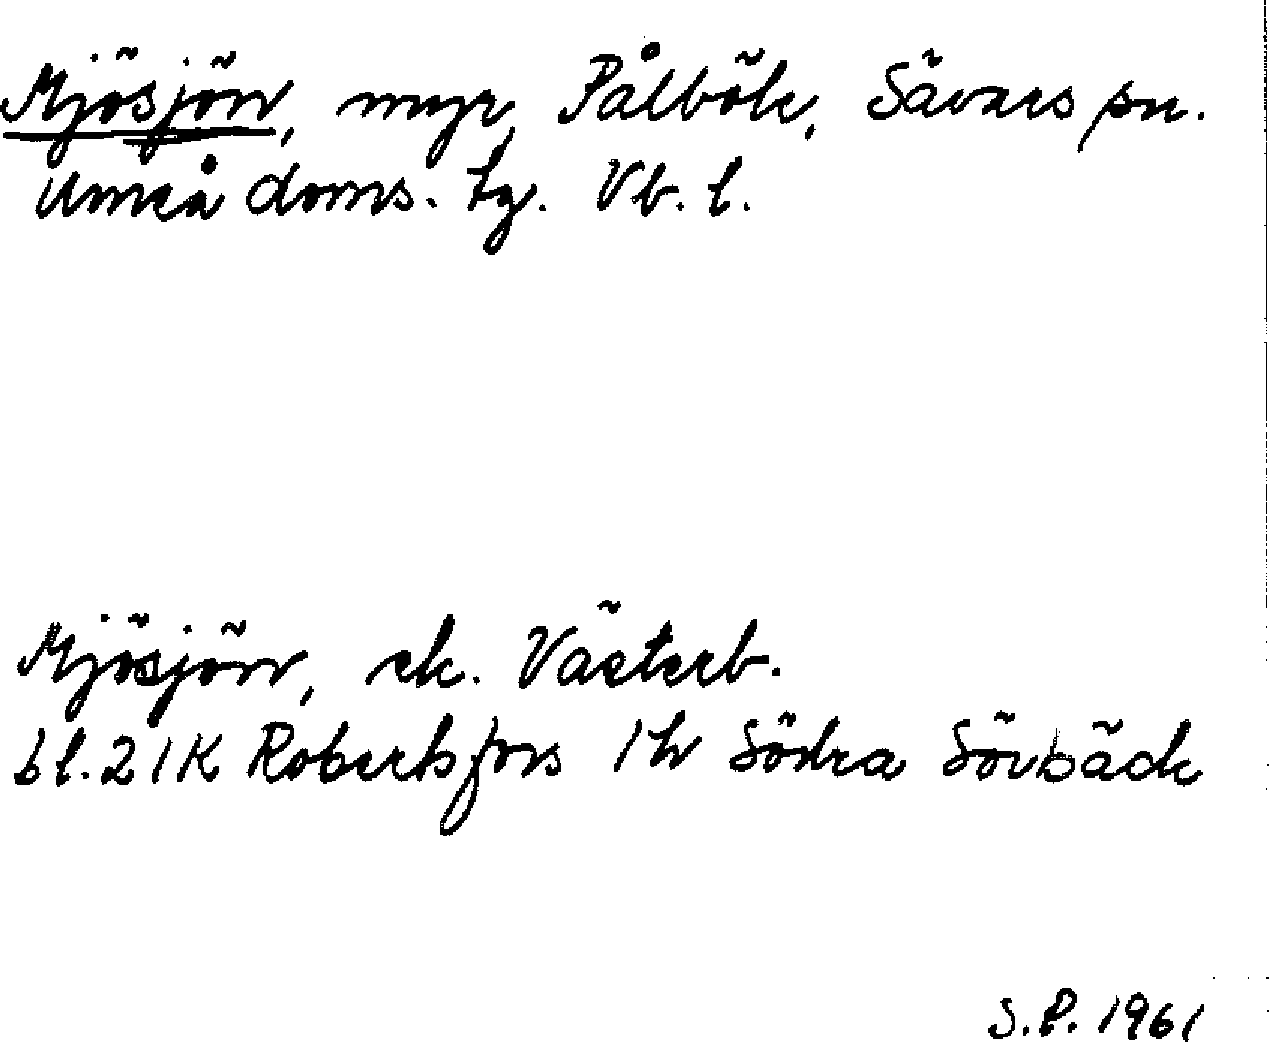 Mjösjön, myr, Pålböle, Sävars sn.
Umeå doms. tg. Vb. l.
Mjösjön, ek. Västerb.
bl. 21K Robertsfors 1h Södra Sörbäck
S.P. 1961